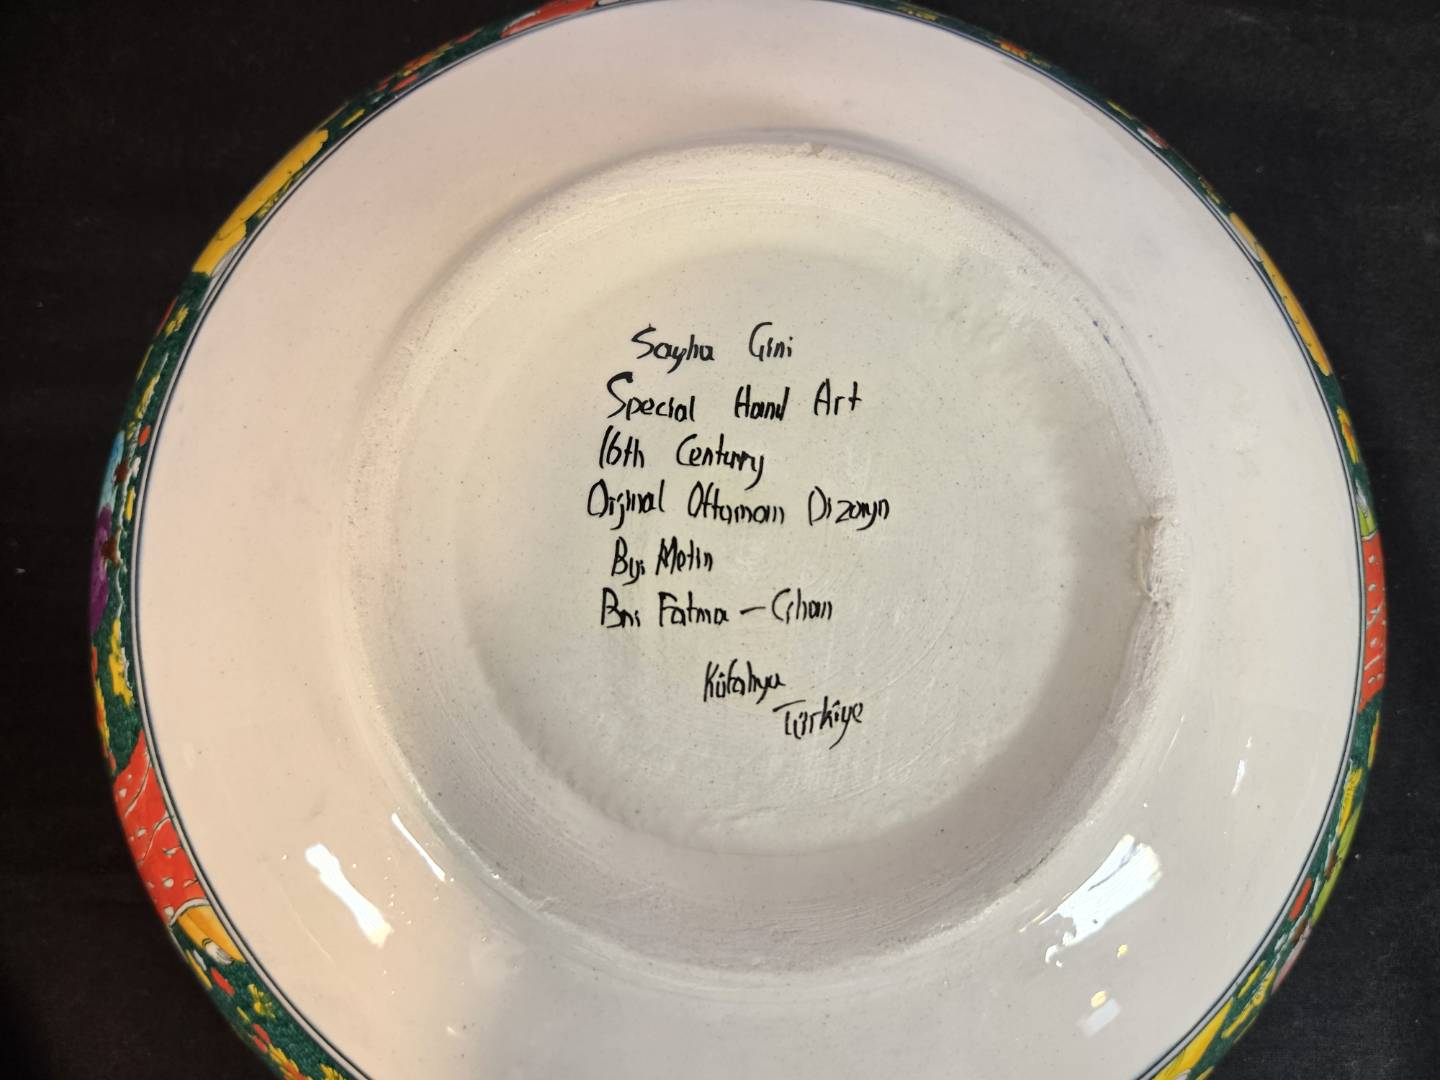 Sayha Çini
Special Hand Art
16th Centurry
Orjinal Ottoman Dizayn
By: Metin
Fatma - Cihan
Kütahya
Türkiye